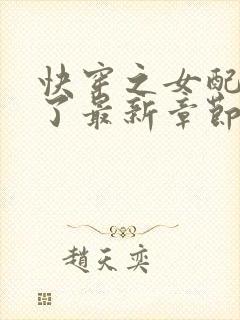 快穿之女配
了最新章節
趙天奕